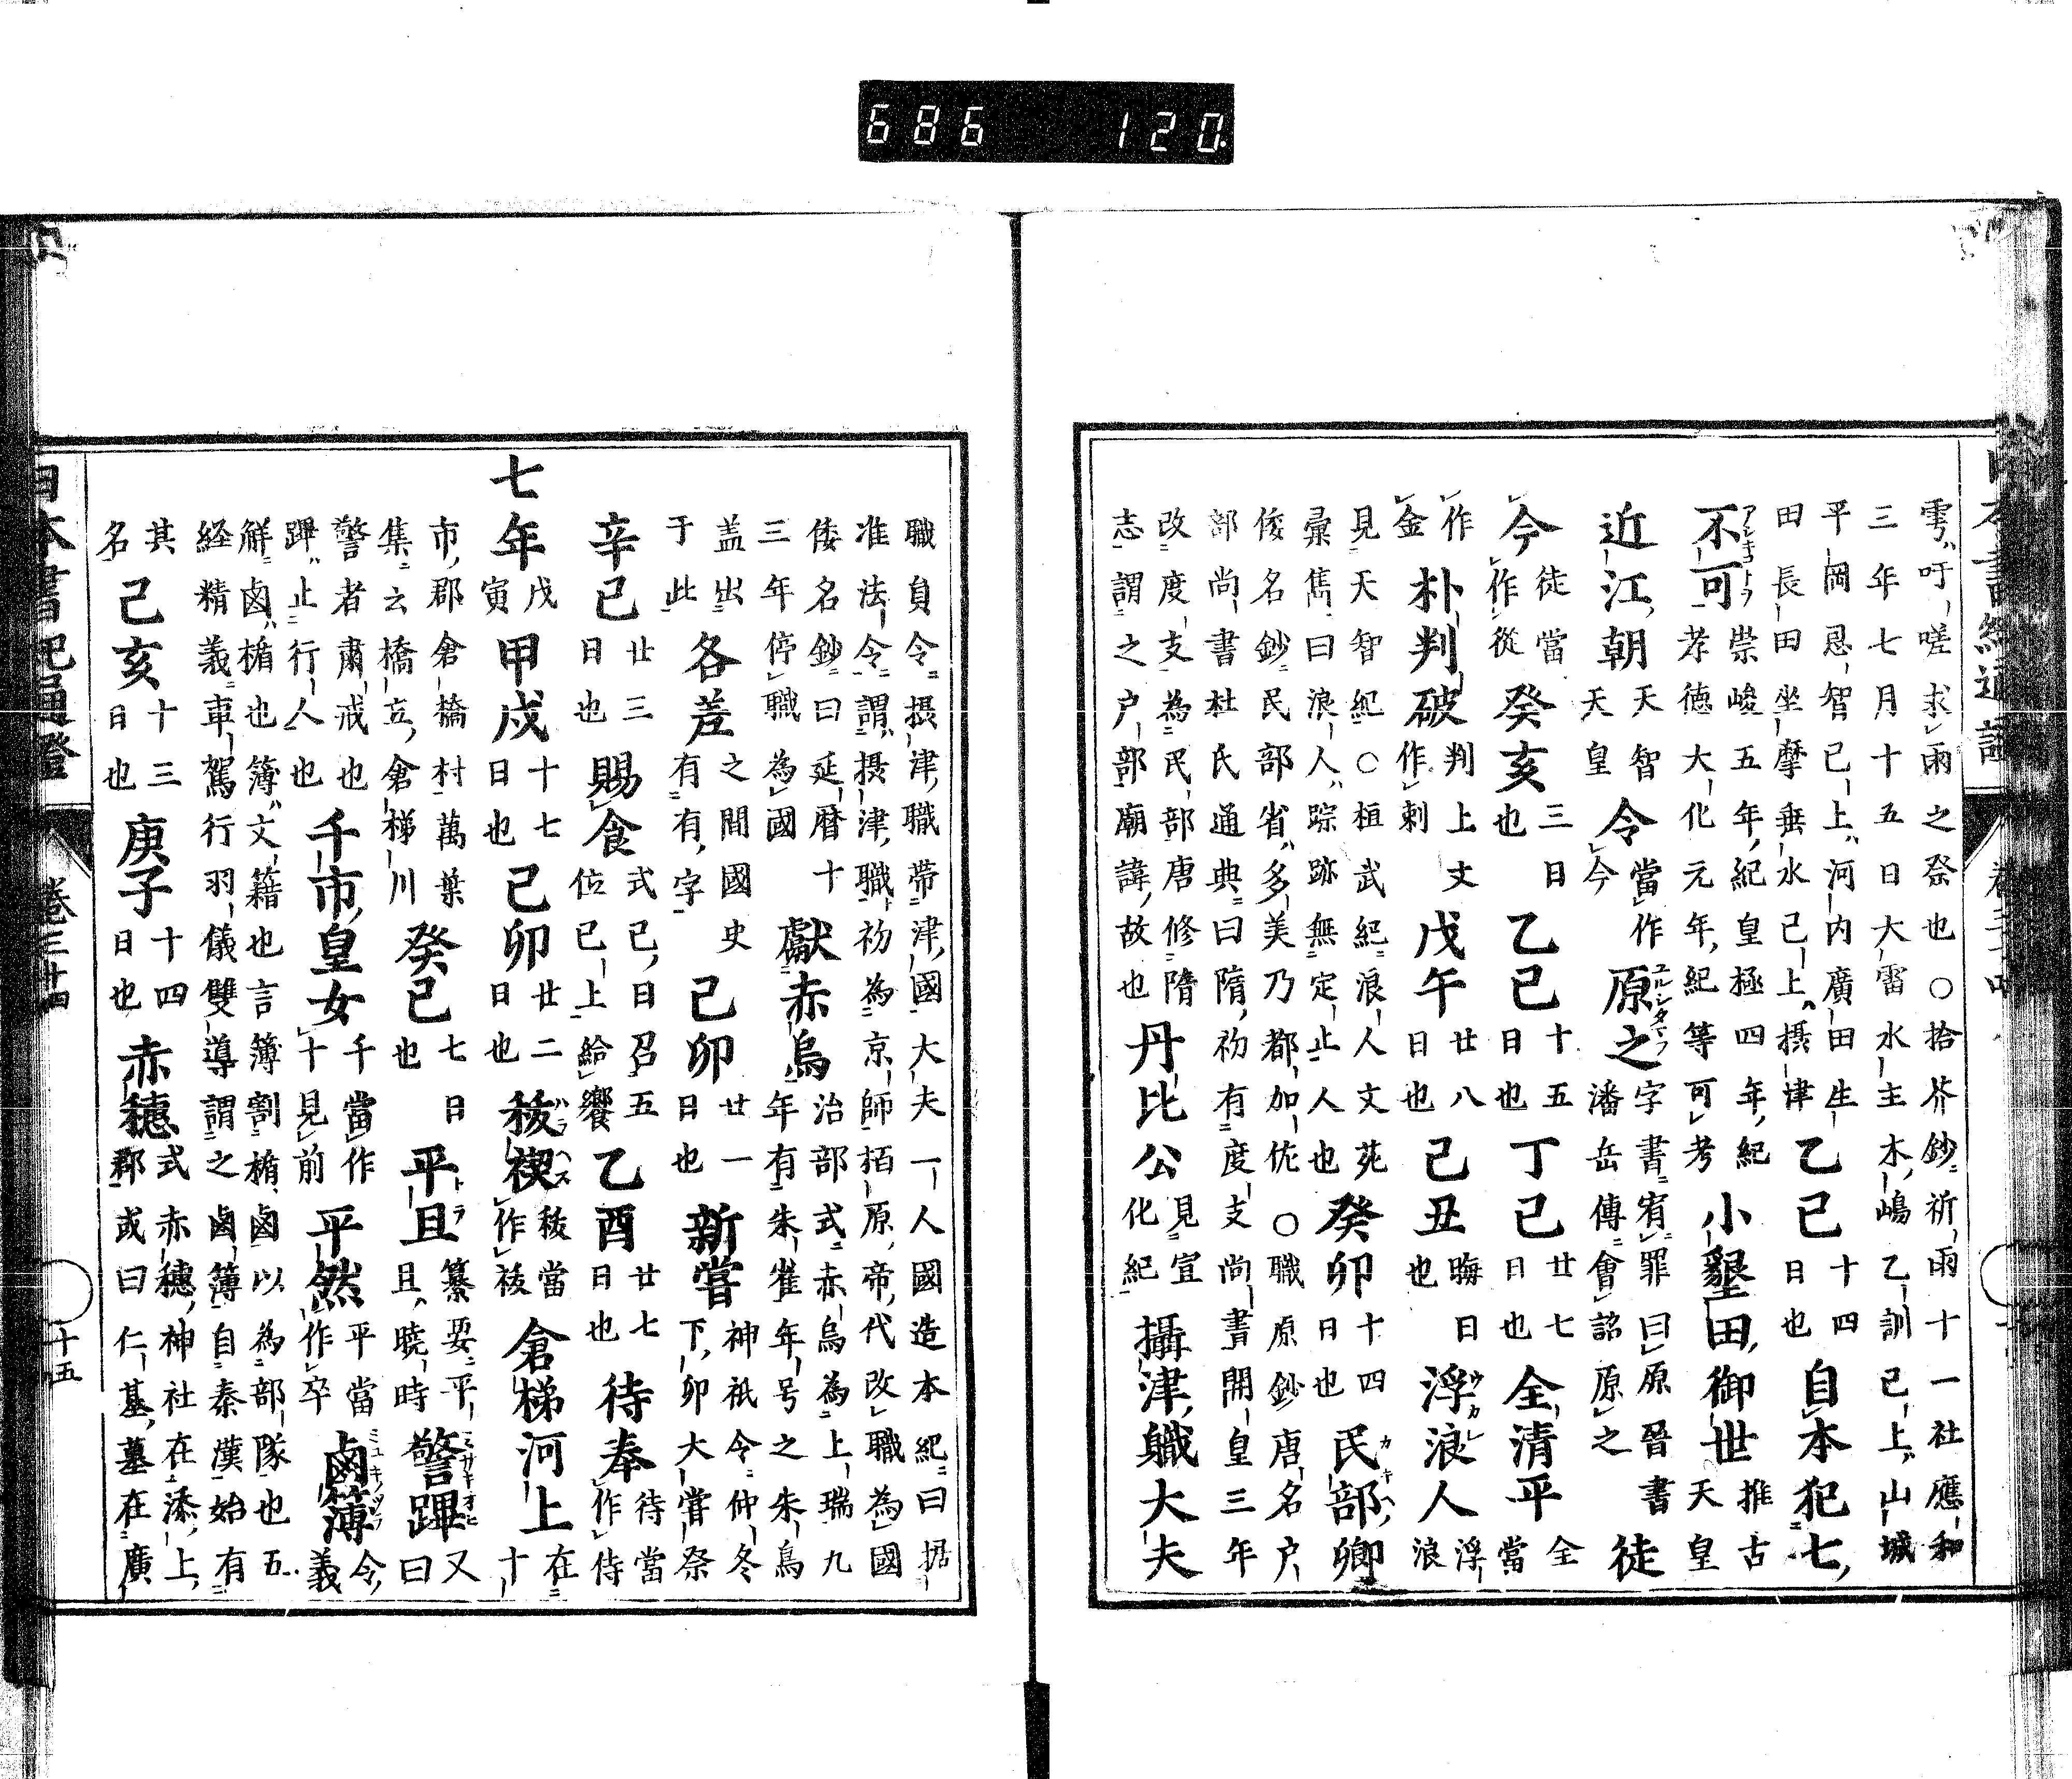 686 120
雩吁嗟求雨之祭也○拾芥鈔祈雨十一社應和
三年七月十五日大雷水主木嶋乙訓已上山城
平岡恩智已上河内廣田生
田長田坐摩垂水已上摂津
乙巳十四日也
自本犯七
不可アシキトフ
崇峻五年紀皇極四年紀
孝徳大化元年紀等可考
小墾田御世推古天皇
近江朝天智天皇
令當作今
原之ユルシタマフ
字書宥罪曰原晉書
潘岳傳會詔原之
徒
今徒當作從
癸亥三日也
乙巳十五日也
丁巳廿七日也
全清平全當
作金
朴判破判上文作刺
戊午廿八日也
己丑晦日也
浮浪人ウカレ浮浪
見天智紀○桓武紀浪人文苑
彙雋曰浪人踪跡無定止人也
癸卯十四日也
民部卿カキヘ
俊名鈔民部省多美乃都加佐○職原鈔唐名戸
部尚書杜氏通典曰隋初有度支尚書開皇三年
改度支為民部唐修隋
志謂之戸部廟諱故也
丹比公見宣化紀
攝津職大夫
職員令摂津職帯津國大夫一人國造本紀曰据
准法令謂摂津職初為京師栢原帝代改職為國
倭名鈔曰延暦十
三年停職為國
獻赤烏
治部式赤烏為上瑞九
年有朱雀年号之朱烏
盖出之間國史
于此有有字
各差
己卯廿一日也
新嘗
神祇令仲冬
下卯大嘗祭
辛巳廿三日也
賜食
式已日召五
位已上給饗
乙酉廿七日也
待奉待當作侍
七年戊寅
甲戌十七日也
己卯廿二日也
秡禊ハラヘス秡當作祓
倉梯河上在十
市郡倉橋村萬葉
集云橋立倉梯川
癸巳七日也
平旦トラ
纂要平
旦曉時
警蹕ミサキオヒ又曰
警者肅戒也
蹕止行人也
千市皇女
千當作
十見前
平然平當作卒
鹵簿ミユキノツラ令義
解鹵楯也簿文籍也言簿割楯鹵以為部隊也五
経精義車駕行羽儀雙導謂之鹵簿自秦漢始有
其名
己亥十三日也
庚子十四日也
赤穂
式赤穂神社在添上
郡或曰仁墓墓在廣
日本書紀通證 卷三十四 十五